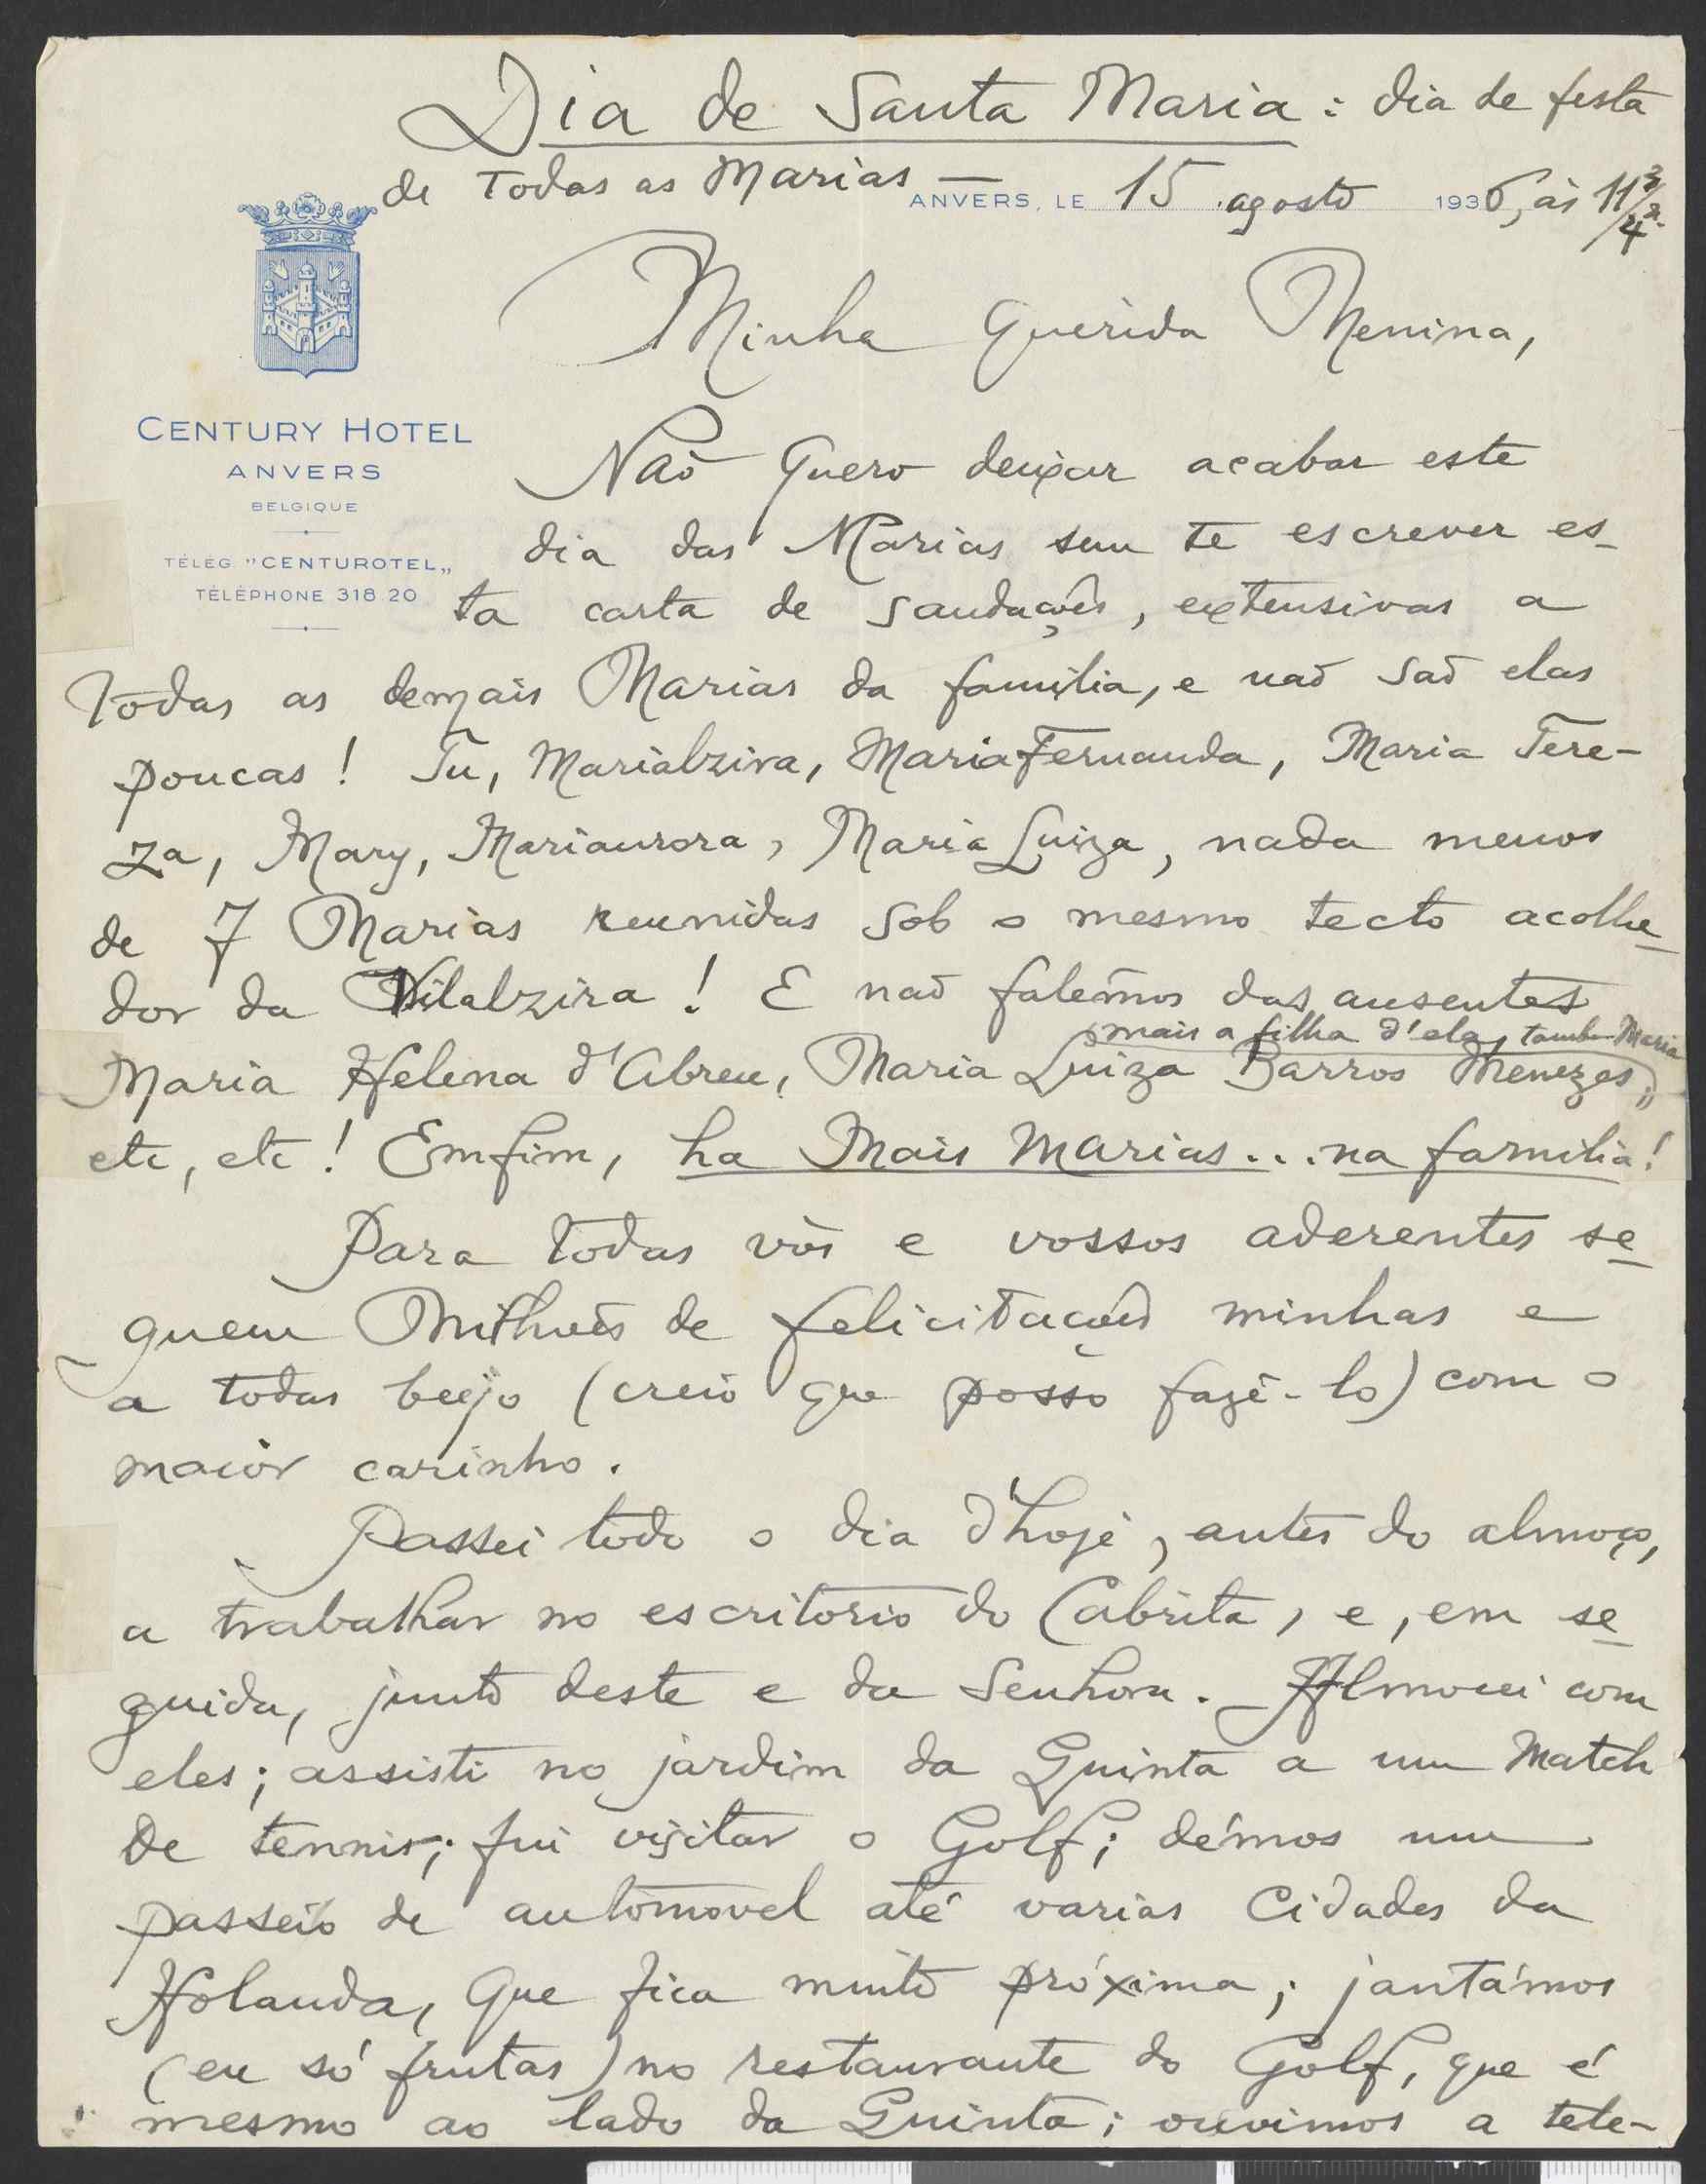 Dia de Santa Maria: dia de festa
de todas as Marias —
ANVERS, LE 15 agosto 1936, às 11 3/4
CENTURY HOTEL
ANVERS
BELGIQUE
TÉLÉG. "CENTUROTEL„
TÉLÉPHONE 318.20
Minha Querida Menina,
Não quero deixar acabar este
dia das Marias sem te escrever es-
ta carta de saudações, extensivas a
todas as demais Marias da familia, e não são elas
poucas! Tu, Marialzira, Maria Fernanda, Maria Tere-
za, Mary, Mariaurora, Maria Luiza, nada menos
de 7 Marias reunidas sob o mesmo tecto acolhe-
dor da Vilalzira! E não falêmos das ausentes
mais a filha d'ela, tambem Maria
Maria Helena d'Abreu, Maria Luiza Barros Menezes,
etc, etc! Emfim, ha mais Marias... na familia!
Para todas vós e vossos aderentes se-
guem milhões de felicitações minhas e
a todas beijo (creio que posso fazê-lo) com o
maiòr carinho.
Passei todo o dia d'hoje, antes do almoço,
a trabalhar no escritorio do Cabrita, e, em se-
guida, junto deste e da Senhora. Almocei com
eles; assisti no jardim da Quinta a um match
de tennis; fui visitar o Golf; démos um
passeio de automovel até varias cidades da
Holanda, que fica muito próxima; jantámos
(eu só frutas) no restaurante do Golf, que é
mesmo ao lado da Quinta; ouvimos a tele-